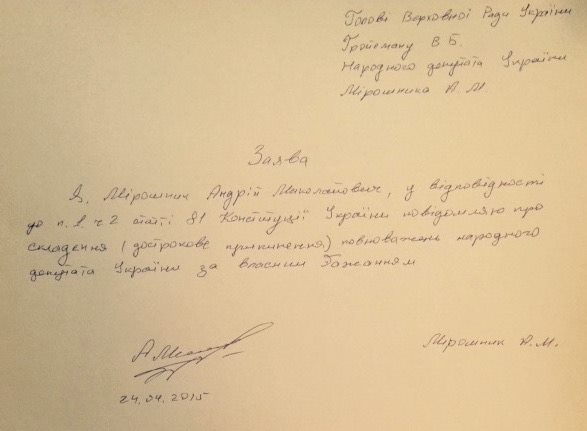 Голові Верховної Ради України
Гройсману В Б.
Народного депутата України
Мірошника А. М.
Заява
Я, Мірошник Андрій Миколайович, у відповідності
до п. 1. ч 2 статі 81 Конституції України повідомляю про
складення (дострокове припинення) повноважень народного
депутата України за власним бажанням
Мірошник А.М.
24.04.2015